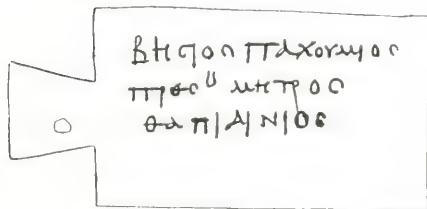 βηϲοϲ παχουμιοϲ
πρεϲυ μητροϲ
θαπιαινιοϲ